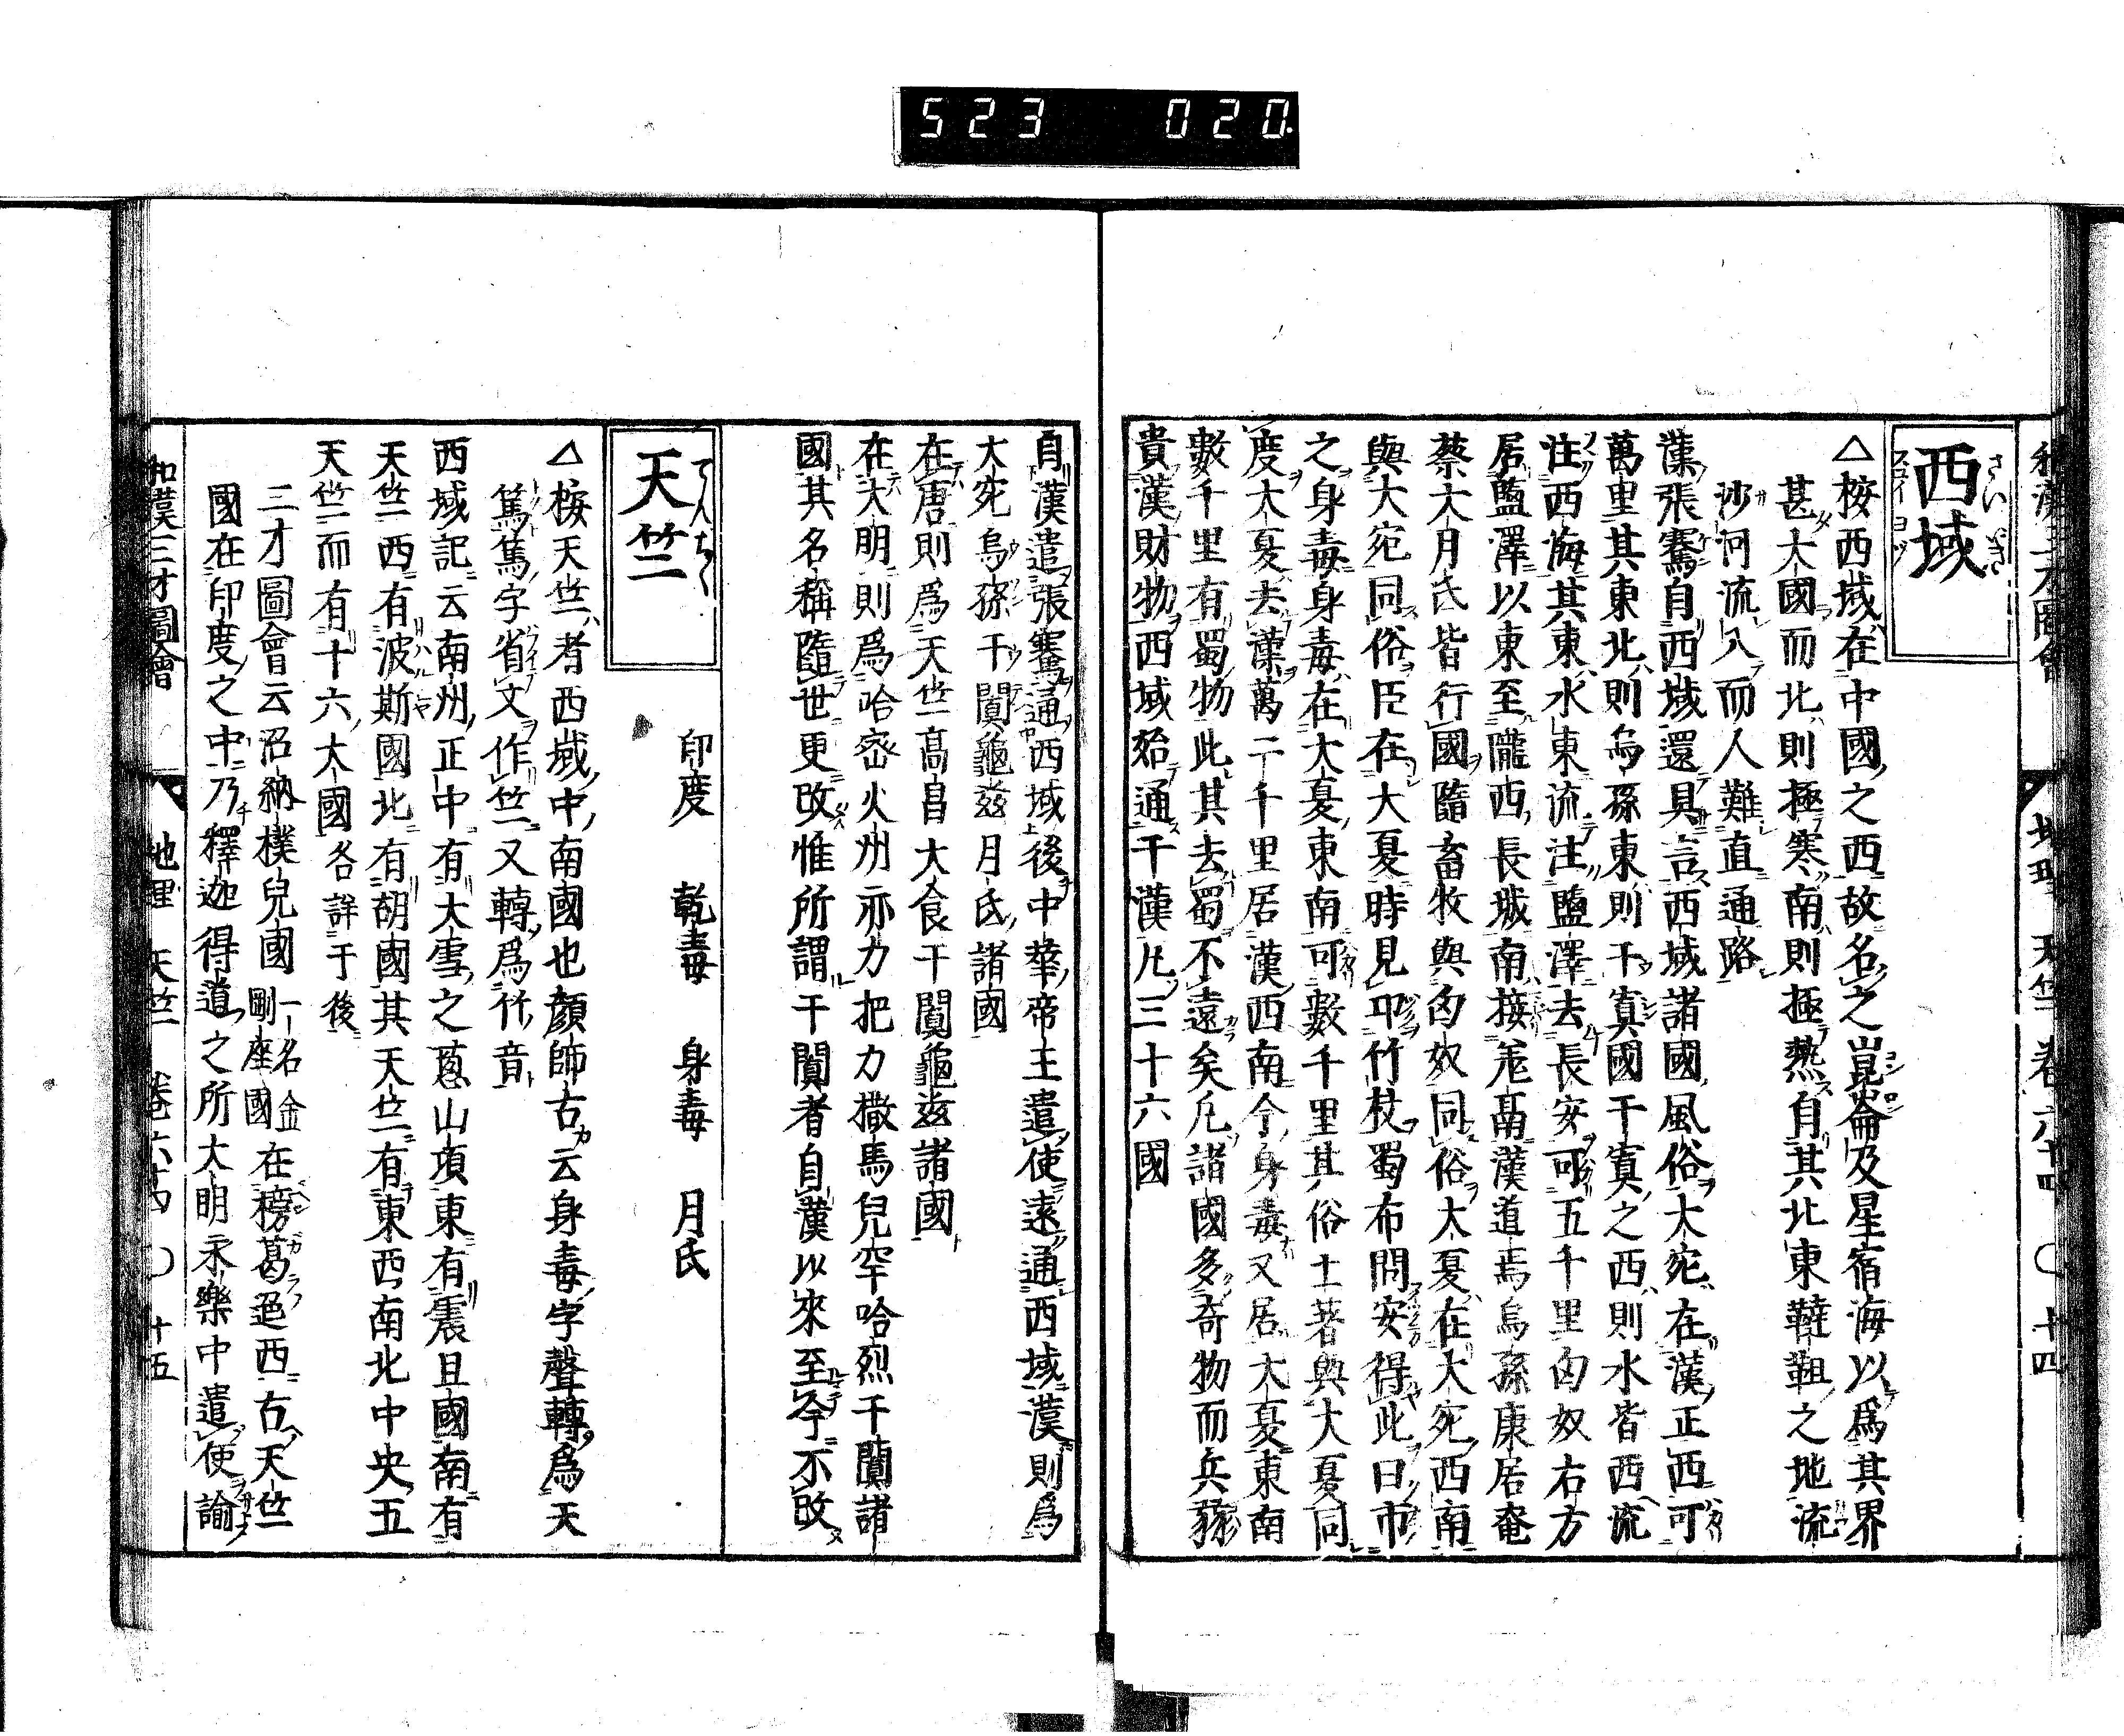 523 020.
和漢三才圖會 地理 天竺 卷六十四 〇 十四
西域
さいいき
△按西域在中國之西故名之崑崙及星宿海以爲其界
甚大國而北則極寒南則極熱自其北東韃靼之地流
沙河流入而人難直通路
漢張騫自西域還具言西域諸國風俗大宛在漢正西可
萬里其東北則烏孫東則于寘國于寘之西則水皆西流
注西海其東水東流注鹽澤去長安可五千里匈奴右方
居鹽澤以東至隴西長城南接羌鬲漢道焉烏孫康居奄
蔡大月氏皆行國隨畜牧與匈奴同俗大夏在大宛西南
與大宛同俗臣在大夏時見卭竹杖蜀布問安得此曰市
之身毒身毒在大夏東南可數千里其俗土著與大夏同
度大夏去漢萬二千里居漢西南今身毒又居大夏東南
數千里有蜀物此其去蜀不遠矣凡諸國多奇物而兵弱
貴漢財物西域始通于漢凡三十六國
自漢遣張騫通西域後中華帝王遣使遠通西域漢則爲
大宛烏孫于闐龜茲月氏諸國
在唐則爲天竺高昌大食于闐龜茲諸國
在大明則爲哈宻火州亦力把力撒馬兒罕哈烈于闐諸
國其名稱隨世更改惟所謂于闐者自漢以來至今不改
天竺
てんぢく
印度 乾毒 身毒 月氏
△按天竺者西域中南國也顔師古云身毒字聲轉爲天
篤篤字省文作竺又轉爲竹音
西域記云南州正中有大雪之葱山項東有震旦國南有
天竺西有波斯國北有胡國其天竺有東西南北中央五
天竺而有十六大國各詳于後
三才圖會云沼納樸兒國一名金剛座國在榜葛迯西古天竺
國在印度之中乃釋迦得道之所大明永樂中遣使諭
和漢三才圖會 地理 天竺 卷六十四 〇 十五